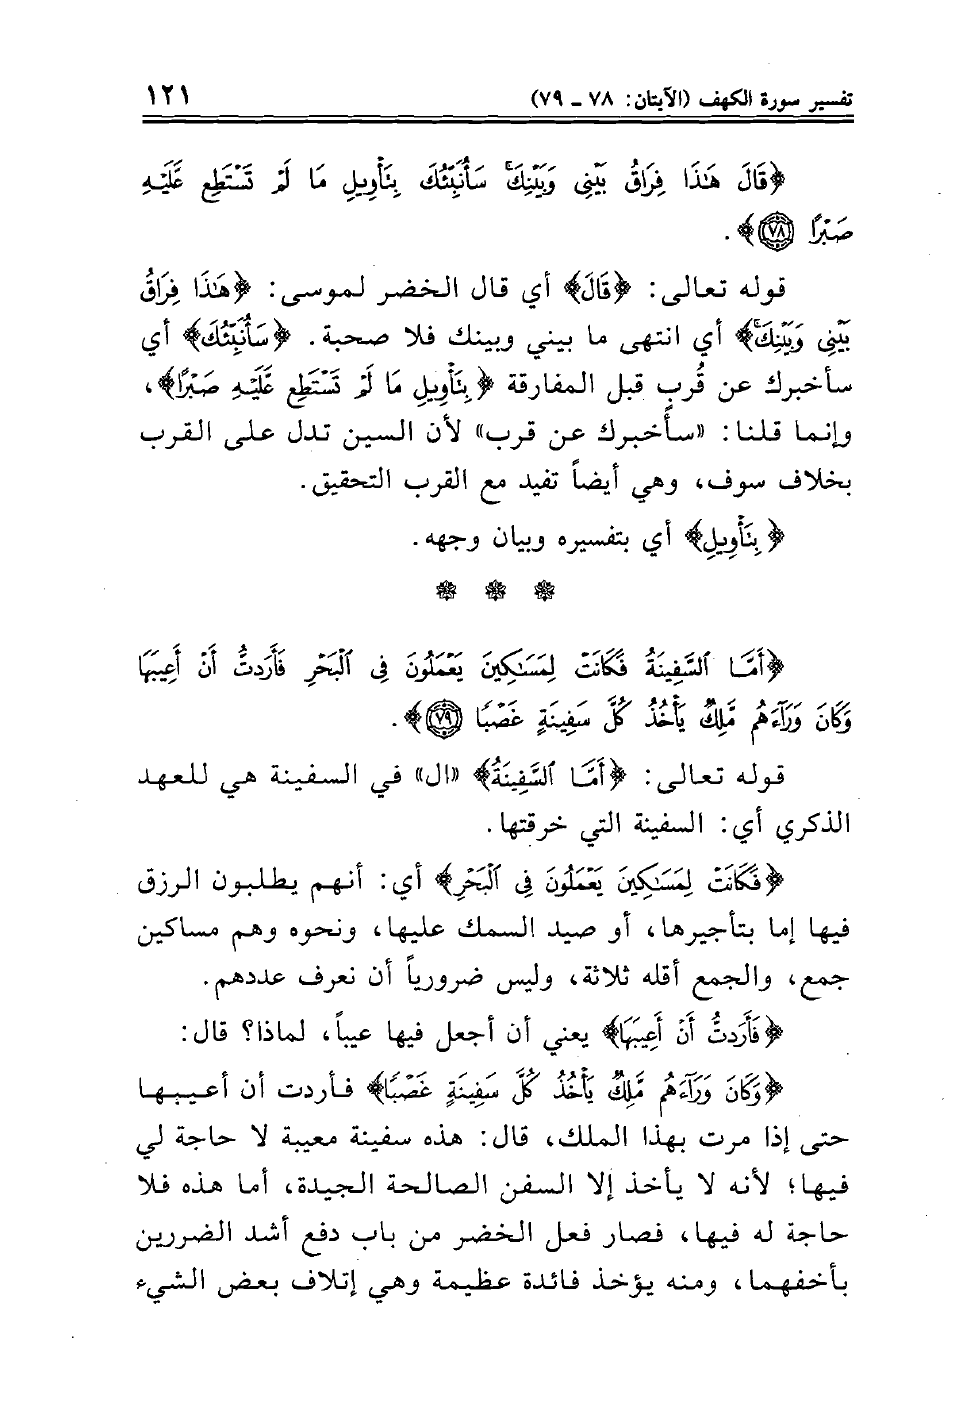 تفسير سورة الكهف (الآيتان: ٧٨ ـ ٧٩) ١٢١
﴿قَالَ هَٰذَا فِرَاقُ بَيْنِي وَبَيْنِكَ ۚ سَأُنَبِّئُكَ بِتَأْوِيلِ مَا لَمْ تَسْتَطِع عَّلَيْهِ
صَبْرًا ٧٨﴾.
قوله تعالى: ﴿قَالَ﴾ أي قال الخضر لموسى: ﴿هَٰذَا فِرَاقُ
بَيْنِي وَبَيْنِكَ ۚ﴾ أي انتهى ما بيني وبينك فلا صحبة. ﴿سَأُنَبِّئُكَ﴾ أي
سأخبرك عن قُربٍ قبل المفارقة ﴿بِتَأْوِيلِ مَا لَمْ تَسْتَطِع عَّلَيْهِ صَبْرًا﴾،
وإنما قلنا: «سأخبرك عن قرب» لأن السين تدل على القرب
بخلاف سوف، وهي أيضاً تفيد مع القرب التحقيق.
﴿بِتَأْوِيلِ﴾ أي بتفسيره وبيان وجهه.
﴿أَمَّا السَّفِينَةُ فَكَانَتْ لِمَسَٰكِينَ يَعْمَلُونَ فِي الْبَحْرِ فَأَرَدتُّ أَنْ أَعِيبَهَا
وَكَانَ وَرَآءَهُم مَّلِكٌ يَأْخُذُ كُلَّ سَفِينَةٍ غَصْبًا ٧٩﴾.
قوله تعالى: ﴿أَمَّا السَّفِينَةُ﴾ «ال» في السفينة هي للعهد
الذكري أي: السفينة التي خرقتها.
﴿فَكَانَتْ لِمَسَٰكِينَ يَعْمَلُونَ فِي الْبَحْرِ﴾ أي: أنهم يطلبون الرزق
فيها إما بتأجيرها، أو صيد السمك عليها، ونحوه وهم مساكين
جمع، والجمع أقله ثلاثة، وليس ضرورياً أن نعرف عددهم.
﴿فَأَرَدتُّ أَنْ أَعِيبَهَا﴾ يعني أن أجعل فيها عيباً، لماذا؟ قال:
﴿وَكَانَ وَرَآءَهُم مَّلِكٌ يَأْخُذُ كُلَّ سَفِينَةٍ غَصْبًا﴾ فأردت أن أعيبها
حتى إذا مرت بهذا الملك، قال: هذه سفينة معيبة لا حاجة لي
فيها؛ لأنه لا يأخذ إلا السفن الصالحة الجيدة، أما هذه فلا
حاجة له فيها، فصار فعل الخضر من باب دفع أشد الضررين
بأخفهما، ومنه يؤخذ فائدة عظيمة وهي إتلاف بعض الشيء